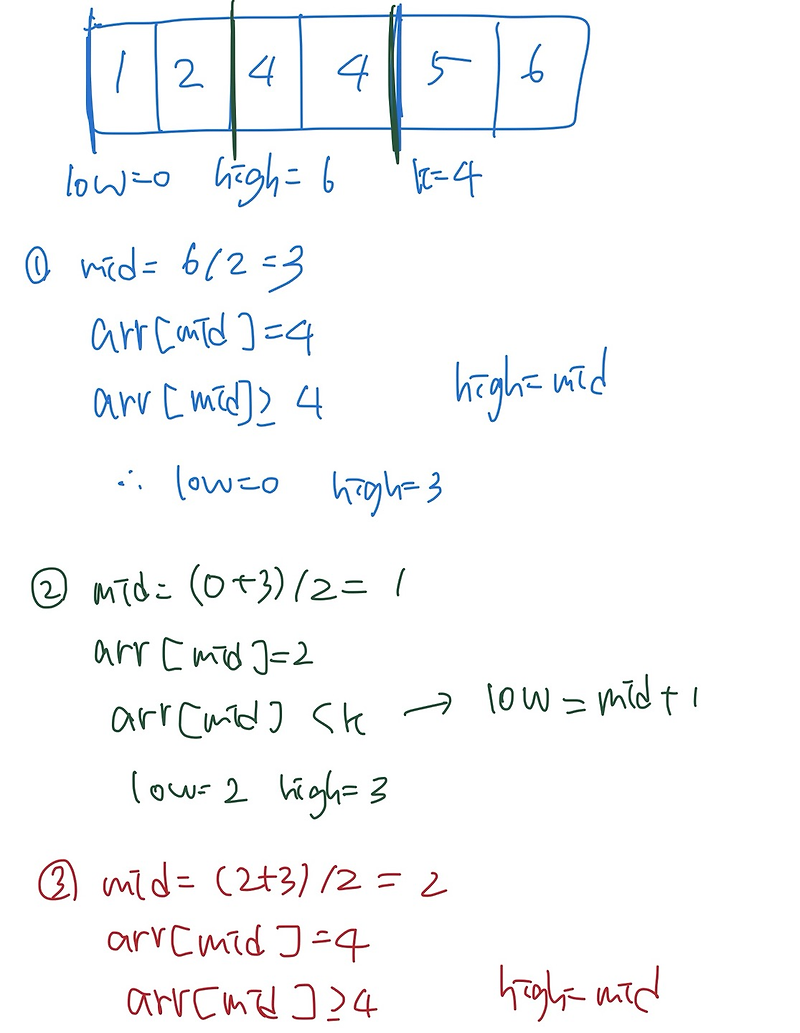 1 2 4 4 5 6
low=0 high=6 k=4
① mid= 6/2=3
arr[mid]=4
arr[mid]≥4 high=mid
∴ low=0 high=3
② mid=(0+3)/2=1
arr[mid]=2
arr[mid]<k → low=mid+1
low=2 high=3
③ mid=(2+3)/2=2
arr[mid]=4
arr[mid]≥4 high=mid